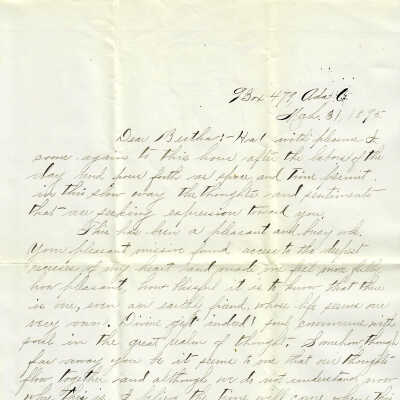 Box 479, Ada O
Mar. 31, 1895
Dear Bertha:- How with pleasure I
come again to this hour after the labors of the
day and pour forth as space and time permit
in this slow way the thoughts and sentiments
that are seeking expression toward you.
This has been a pleasant and busy wk.
Your pleasant missive found access to the deepest
recesses of my heart and made me feel more fully
how pleasant, how blissful it is to know that there
is one, even an earthly friend, whose life seems our
very own. Divine gift indeed! soul commune with
soul in the great realm of thought. Somehow, though
far away you be it seems to me that our thoughts
flow together and although we do not understand now
why this is, I believe the time will come when this